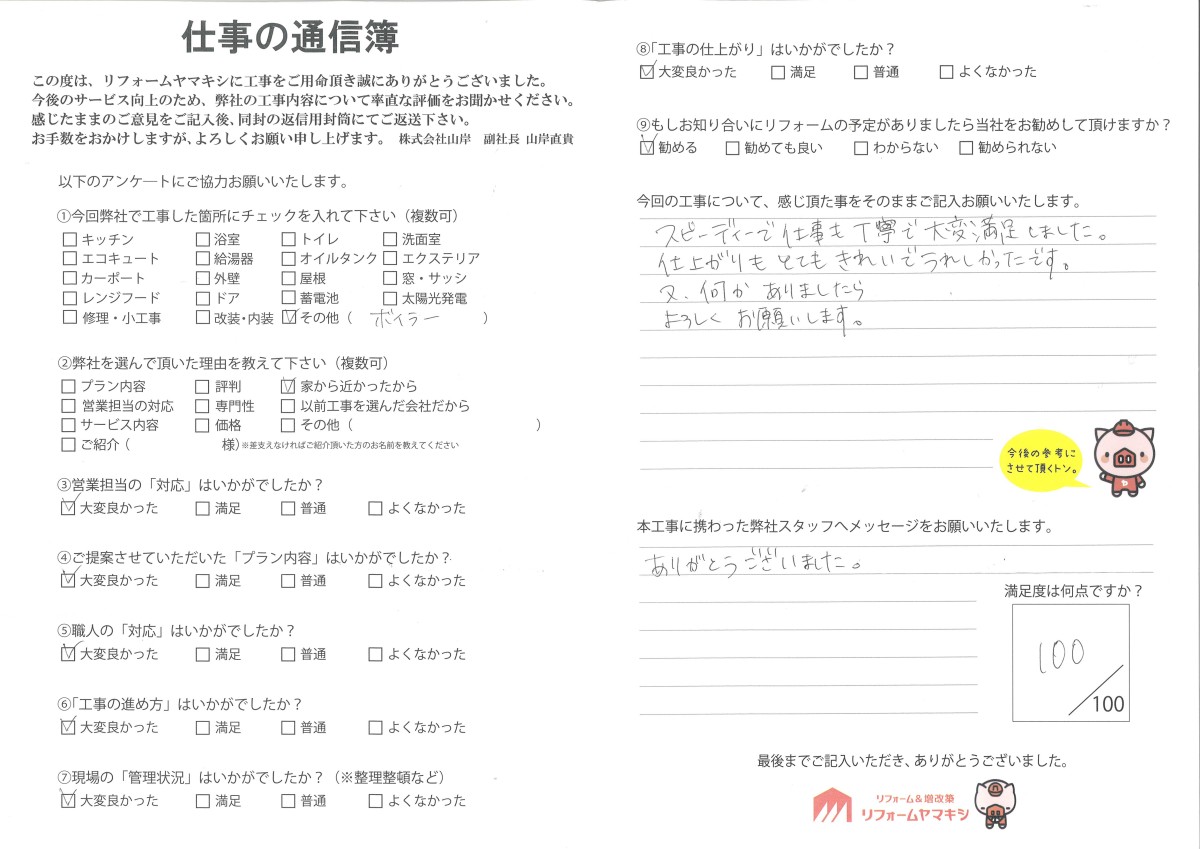 仕事の通信簿
この度は、リフォームヤマキシに工事をご用命頂き誠にありがとうございました。
今後のサービス向上のため、弊社の工事内容について率直な評価をお聞かせください。
感じたままのご意見をご記入後、同封の返信用封筒にてご返送下さい。
お手数をおかけしますが、よろしくお願い申し上げます。 株式会社山岸 副社長 山岸直貴
以下のアンケートにご協力お願いいたします。
①今回弊社で工事した箇所にチェックを入れて下さい（複数可）
□ キッチン □ 浴室 □ トイレ □ 洗面室
□ エコキュート □ 給湯器 □ オイルタンク □ エクステリア
□ カーポート □ 外壁 □ 屋根 □ 窓・サッシ
□ レンジフード □ ドア □ 蓄電池 □ 太陽光発電
□ 修理・小工事 □ 改装・内装 ☑ その他（ ボイラー ）
②弊社を選んで頂いた理由を教えて下さい（複数可）
□ プラン内容 □ 評判 ☑ 家から近かったから
□ 営業担当の対応 □ 専門性 □ 以前工事を選んだ会社だから
□ サービス内容 □ 価格 □ その他（ ）
□ ご紹介（ 様）※差支えなければご紹介頂いた方のお名前を教えてください
③営業担当の「対応」はいかがでしたか？
☑ 大変良かった □ 満足 □ 普通 □ よくなかった
④ご提案させていただいた「プラン内容」はいかがでしたか？
☑ 大変良かった □ 満足 □ 普通 □ よくなかった
⑤職人の「対応」はいかがでしたか？
☑ 大変良かった □ 満足 □ 普通 □ よくなかった
⑥「工事の進め方」はいかがでしたか？
☑ 大変良かった □ 満足 □ 普通 □ よくなかった
⑦現場の「管理状況」はいかがでしたか？（※整理整頓など）
☑ 大変良かった □ 満足 □ 普通 □ よくなかった
⑧「工事の仕上がり」はいかがでしたか？
☑ 大変良かった □ 満足 □ 普通 □ よくなかった
⑨もしお知り合いにリフォームの予定がありましたら当社をお勧めして頂けますか？
☑ 勧める □ 勧めても良い □ わからない □ 勧められない
今回の工事について、感じ頂た事をそのままご記入お願いいたします。
スピーディーで仕事も丁寧で大変満足しました。
仕上がりもとてもきれいでうれしかったです。
又、何かありましたら
よろしくお願いします。
今後の参考に
させて頂くトン。
本工事に携わった弊社スタッフへメッセージをお願いいたします。
ありがとうございました。
満足度は何点ですか？
100
/100
最後までご記入いただき、ありがとうございました。
リフォーム＆増改築
リフォームヤマキシ